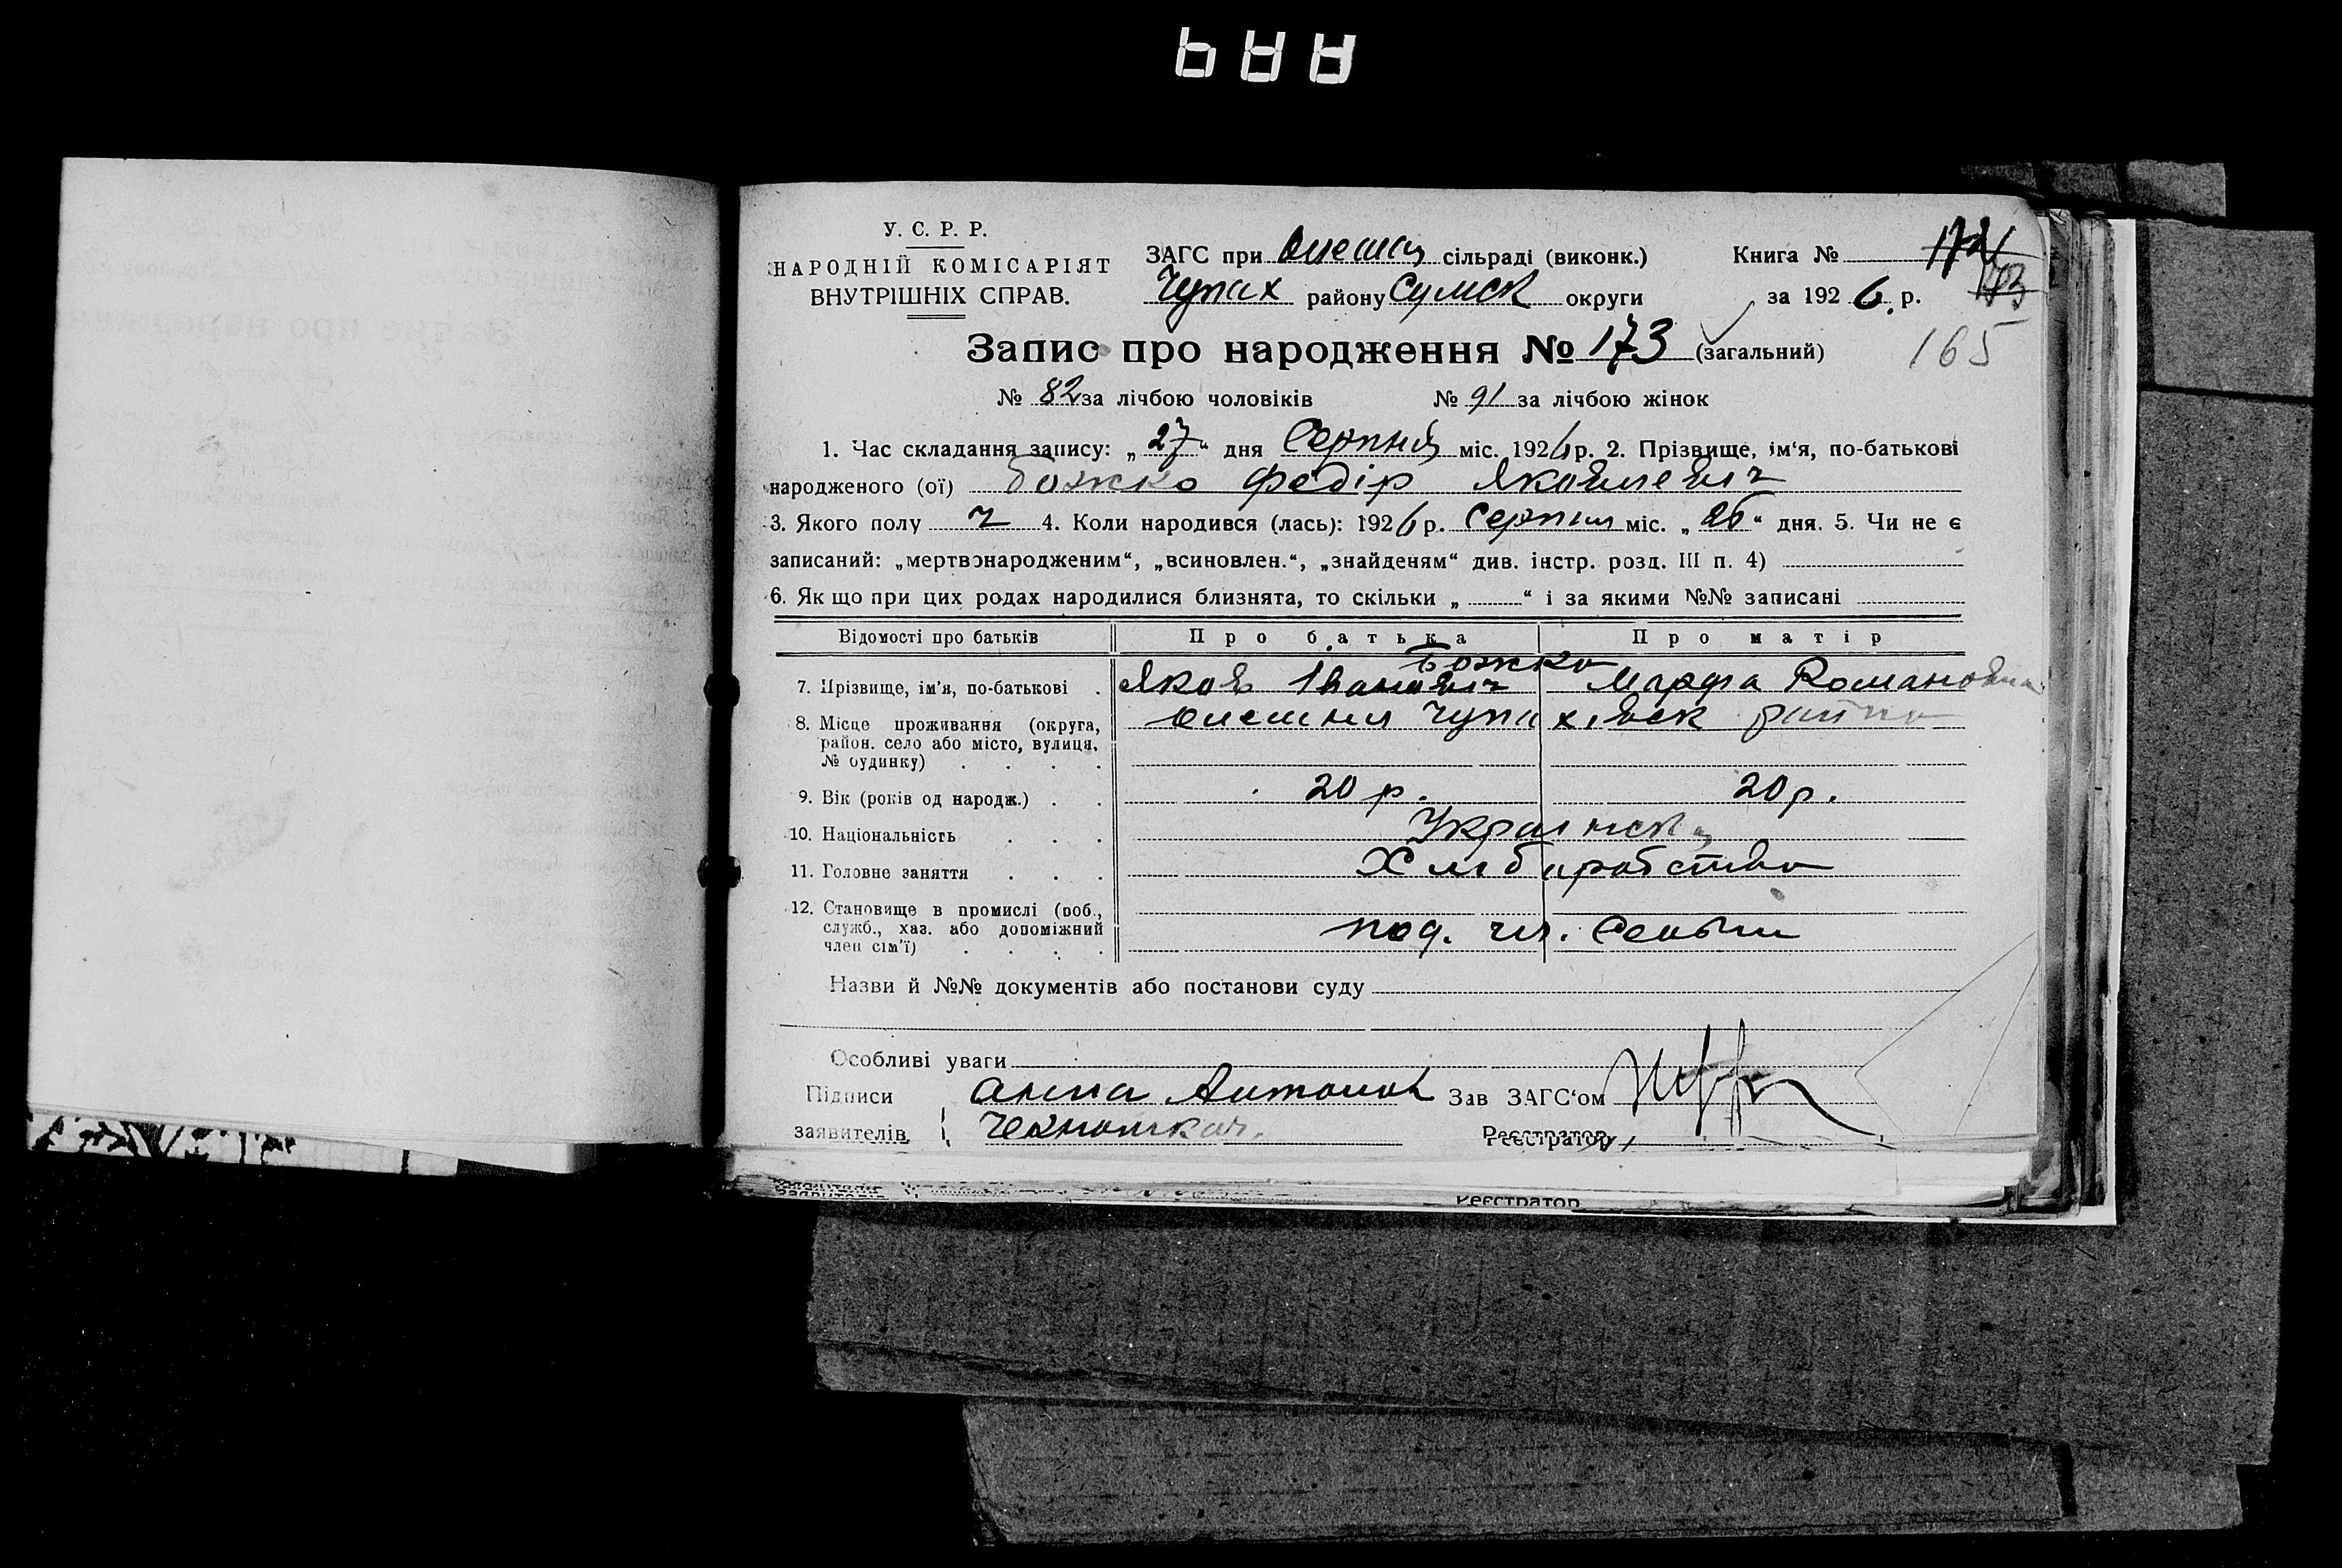 У. С. Р. Р.
НАРОДНІЙ КОМІСАРІЯТ
ВНУТРІШНІХ СПРАВ.
ЗАГС при Олешня сільраді (виконк.)
Чупах району Сумск округи
Книга №
за 1926 р.
165
Запис про народження № 173 (загальний)
№ 82 за лічбою чоловіків № 91 за лічбою жінок
1. Час складання запису: „27“ дня Серпня міс. 1926 р. 2. Прізвище, ім'я, по-батькові
народженого (ої) Божко Федір Яковлевіч
3. Якого полу ч 4. Коли народився (лась): 1926 р. Серпня міс. „26“ дня. 5. Чи не є
записаний: „мертвонародженим“, „всиновлен.“, „знайденям“ див. інстр. розд. III п. 4)
6. Як що при цих родах народилися близнята, то скільки „ “ і за якими №№ записані
Відомості про батьків Про батька Про матір
Божко
7. Прізвище, ім'я, по-батькові . Яков Івановіч Марфа Романовна
8. Місце проживання (округа, Олешня Чупахівск района
район. село або місто, вулиця,
№ будинку) . . . .
9. Вік (років од народж.) . . 20 р. 20 р.
10. Національність . . . Українск
11. Головне заняття . . . Хліборобство
12. Становище в промислі (роб.,
служб., хаз. або допоміжний под. чл. Семьи
член сім'ї) . . . .
Назви й №№ документів або постанови суду
Особливі уваги
Підписи Анна Антонов Зав ЗАГС'ом
заявителів Реєстратор
Реєстратор